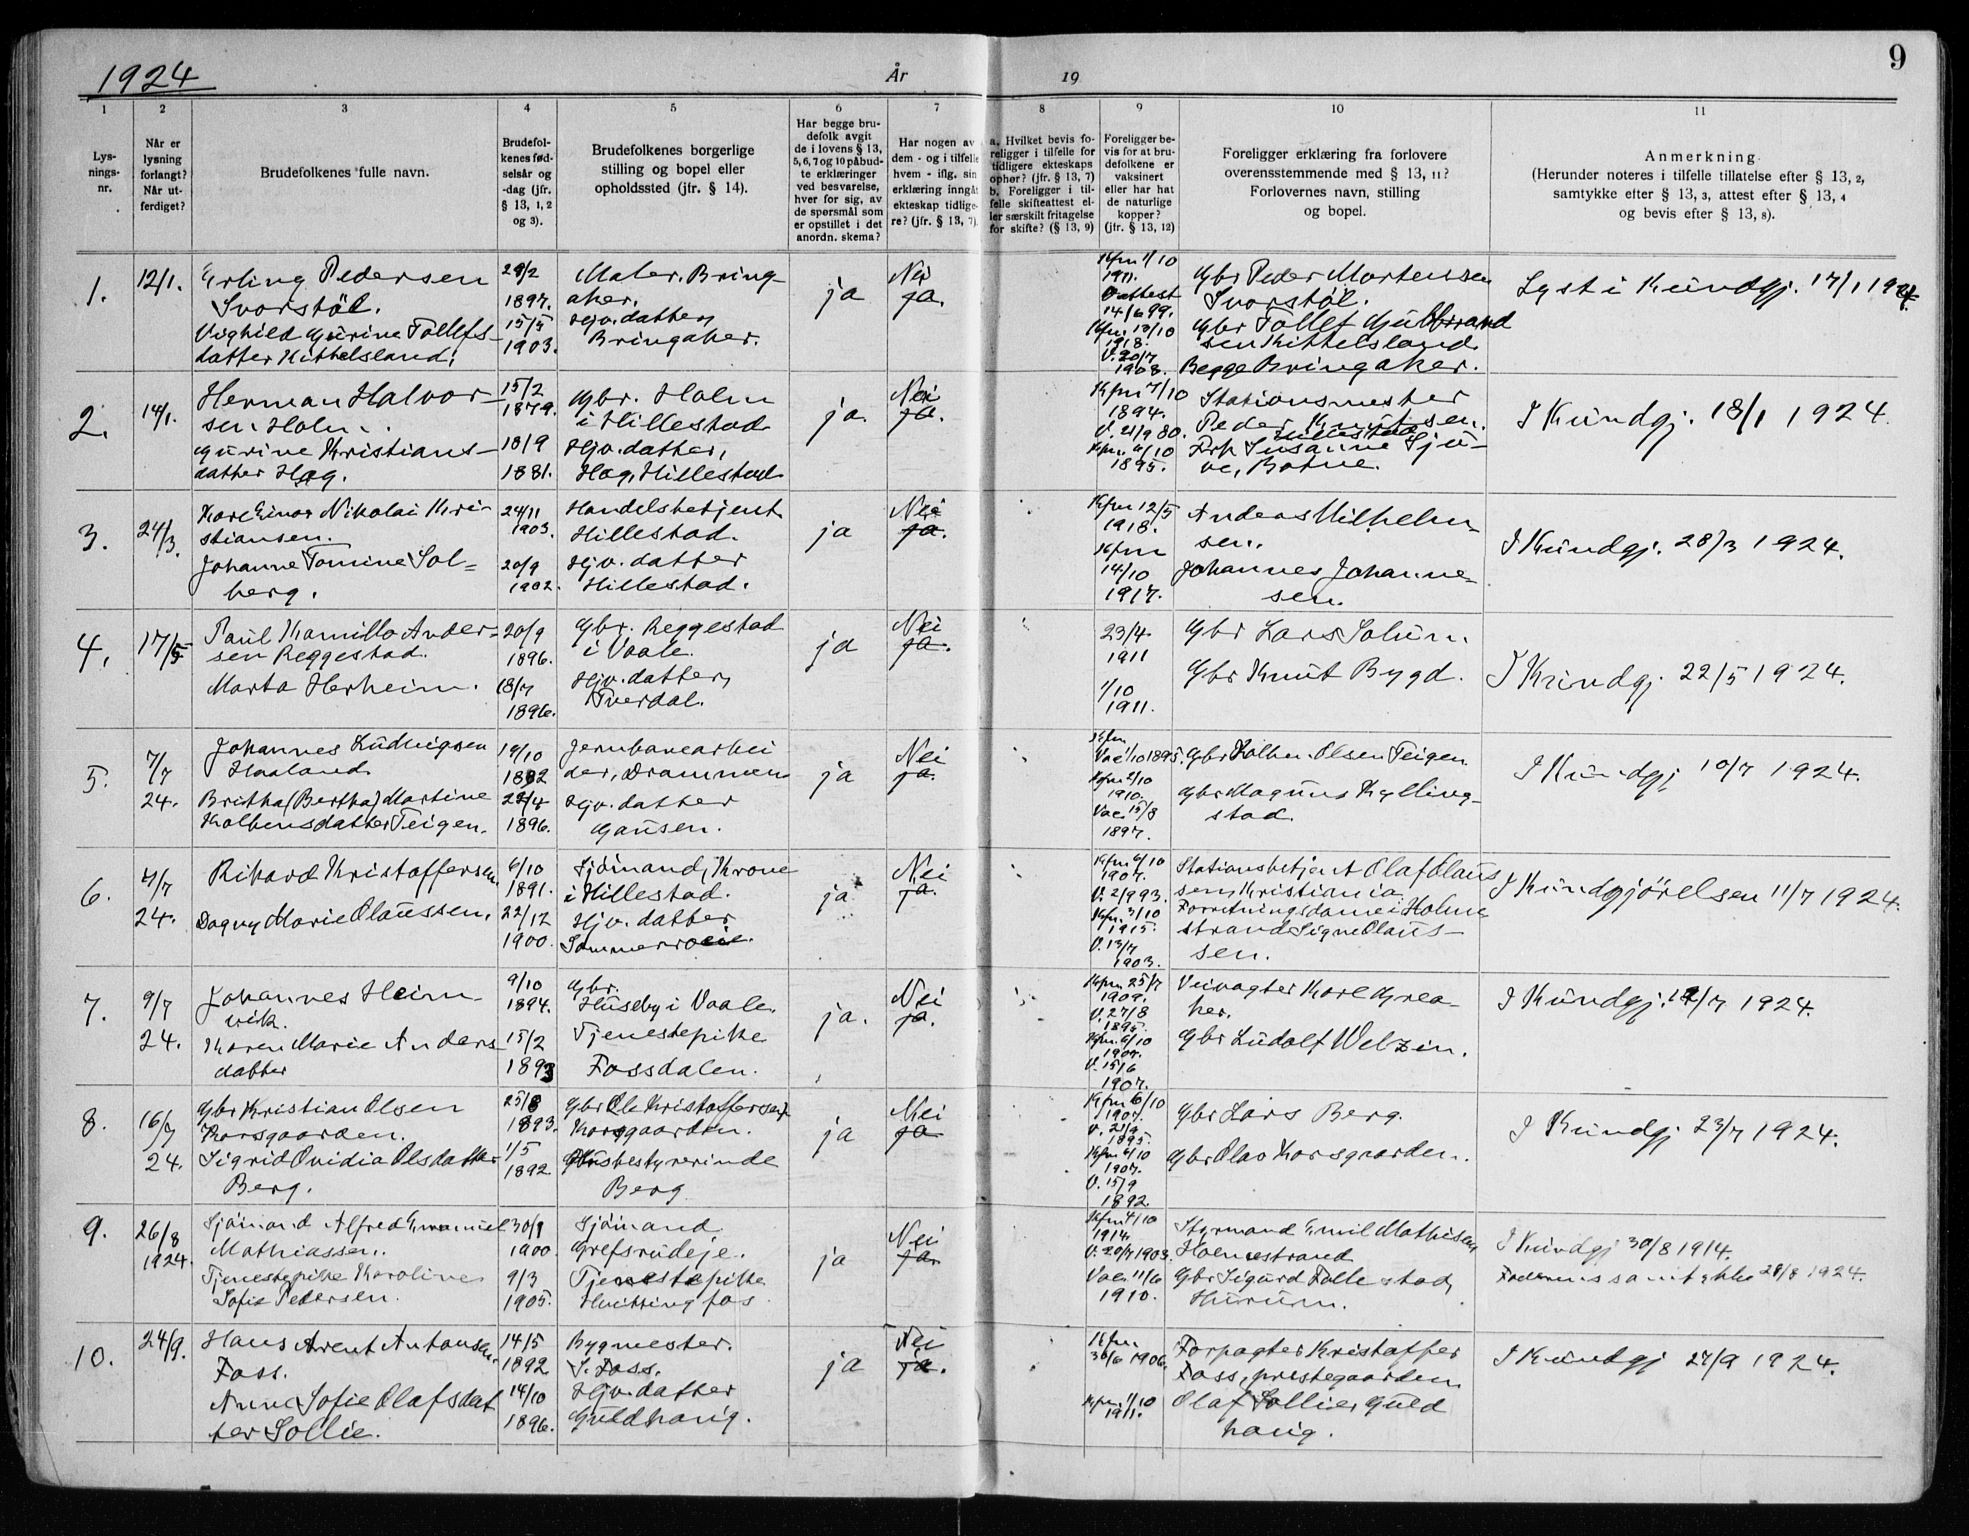 1924
År
19
9
1
2
3
4
5
6
7
8
9
10
11
Lys-
nings-
nr.
Når er
lysning
forlangt?
Når ut-
ferdiget?
Brudefolkenes fulle navn.
Brudefol-
kenes fød-
selsår og
-dag (jfr.
§ 13, 1, 2
og 3).
Brudefolkenes borgerlige
stilling og bopel eller
opholdssted (jfr. § 14).
Har begge bru-
defolk avgit
de i lovens § 13,
5, 6, 7 og 10 påbud-
te erklæringer
ved besvarelse,
hver for sig, av
de spørsmål som
er opstillet i det
anordn. skema?
Har nogen av
dem - og i tilfelle
hvem - iflg. sin
erklæring inngåt
ekteskap tidlige-
re? (jfr. § 13, 7).
a. Hvilket bevis fo-
religger i tilfelle for
tidligere ekteskaps
ophør? (jfr. § 13, 7)
b. Foreligger i til-
felle skifteattest el-
ler særskilt fritagelse
for skifte? (§ 13, 9)
Foreligger be-
vis for at bru-
defolkene er
vaksinert
eller har hat
de naturlige
kopper?
(jfr. § 13, 12)
Foreligger erklæring fra forlovere
overensstemmende med § 13, 11?
Forlovernes navn, stilling
og bopel.
Anmerkning
(Herunder noteres i tilfelle tillatelse efter § 13, 2,
samtykke efter § 13, 3, attest efter § 13, 4
og bevis efter § 13, 8).
1.
12/1.
Erling Pedersen
Svorstöl.
Vighild Gurine Tollefs-
datter Kittelsland.
29/2
1897.
15/5
1903.
Maler. Bring-
aker.
Hjv. datter,
Bringaker.
ja
Nei
ja.
Kfm 1/10
1911.
V attest
14/6 99.
Kfm. 13/10
1918.
V. 20/7
1908.
Gbr Peder Mortensen
Svorstöl.
Gbr Tollef Gulbrand
sen Kittelsland
Begge Bringaker.
Lyst i Kundgj. 17/1 1924.
2.
14/1.
Herman Halvor-
sen Holm.
Gurine Kristians-
datter Hag.
15/2
1879.
18/9
1881.
Gbr. Holm
i Hillestad
Hjv. datter,
Hag, Hillestad
ja.
Nei
ja.
Kfm 7/10
1894.
V. 21/9 80.
Kfm. 6/10
1895.
Stationsmester
Peder Knutsen.
Hillestad
Frk Susanne Tju-
ve, Botne.
I Kundgj. 18/1 1924.
3.
24/3.
Karl Einar Nikolai Kri-
stiansen.
Johanne Tomine Sol-
berg.
24/11
1903.
20/9
1902.
Handelsbetjent
Hillestad.
Hjv. datter
Hillestad.
ja
Nei
ja.
Kfm 12/5
1918.
Kfm
14/10
1917.
Anders Wilhelm-
sen.
Johannes Johanne-
sen.
I Kundgj. 28/3 1924.
4.
17/5
Paul Kamillo Ander-
sen Reggestad.
Marta Herheim.
20/9
1896.
18/7
1896.
Gbr. Reggestad
i Vaale.
Hjv. datter,
Tverdal.
ja
Nei
ja.
23/4
1911
1/10
1911.
Gbr Lars Solum.
Gbr Knut Bygd.
I Kundgj. 22/5 1924.
5.
7/7
24.
Johannes Ludvigsen
Haaland
Britha (Bertha) Martine
Kolbensdatter Teigen.
19/10
1892
22/4
1896.
Jernbanearbei
der, Drammen
Hjv. datter
Gausen.
ja
Nei
ja.
Kfm
Vac 1/10 1895.
Kfm 2/10
1910.
Vac. 15/8
1897.
Gbr Kolben Olsen Teigen
Gbr Magnus Kylling-
stad.
I Kundgj 10/7 1924.
6.
4/7
24.
Rikard Kristoffersen
Dagny Marie Olaussen.
6/10
1891.
22/12
1900.
Sjömand, Krone
i Hillestad.
Hjv. datter
Sommerroeie.
ja
Nei
ja.
Kfm 6/10
1907.
V. 2/9 93.
Kfm. 3/10
1915.
V. 13/7
1903.
Stationsbetjent Olaf Olaus
sen, Kristiania
Forretningsdame i Holme
strand Signe Olaus-
sen.
I Kundgjörelsen 11/7 1924.
7.
9/7
24.
Johannes Heim-
vik.
Karen Marie Anders
datter
9/10
1894.
15/2
1893
Gbr.
Huseby i Vaale.
Tjenestepike
Fossdalen.
ja.
Nei
ja.
Kfm 25/7
1909.
V. 27/8
1895.
Kfm. 6/10
1907.
V. 15/6
1907.
Veivogter Karl Grea-
ker.
Gbr Ludolf Welzin.
I Kundgj. 12/7 1924.
8.
16/7
24.
Gbr Kristian Olsen
Korsgaarden.
Sigrid Ovidia Olsdatter
Berg.
25/8
1893.
1/5
1892
Gbr Ole Kristoffersen
Korsgaarden.
Husbestyrerinde
Berg
ja
Nei
ja
Kfm 6/10
1907.
V. 21/9
1895.
Kfm 6/10
1907.
V. 15/9
1892.
Gbr Lars Berg.
Gbr Olav Korsgaarden.
I Kundgj 23/7 1924.
9.
26/8
1924.
Sjömand Alfred Emanuel
Mathiassen.
Tjenestepike Karoline
Sofie Pedersen.
30/9
1900.
9/3
1905.
Sjömand
Grefsrudeje.
Tjenestepike
Hvittingfos
ja
Nei
ja.
Kfm 4/10
1914.
V. 20/7 1903.
Vac. 11/6
1910.
Styrmand Emil Mathisen
Holmestrand
Gbr Sigurd Follestad,
Hurum.
I Kundgj 30/8 1914.
Faderens samtykke 28/8 1924.
10.
24/9.
Hans Arent Antonsen
Foss.
Anne Sofie Olafsdat
ter Sollie.
14/5
1892
14/10
1896.
Bygmester.
S. Foss.
Hjv. datter
Guldhaug.
ja
Nei
ja.
Kfm.
30/6 1906.
Kfm. 1/10
1911.
Forpagter Kristoffer
Foss, prestegaarden
Olaf Sollie, Guld
haug.
I Kundgj 27/9 1924.